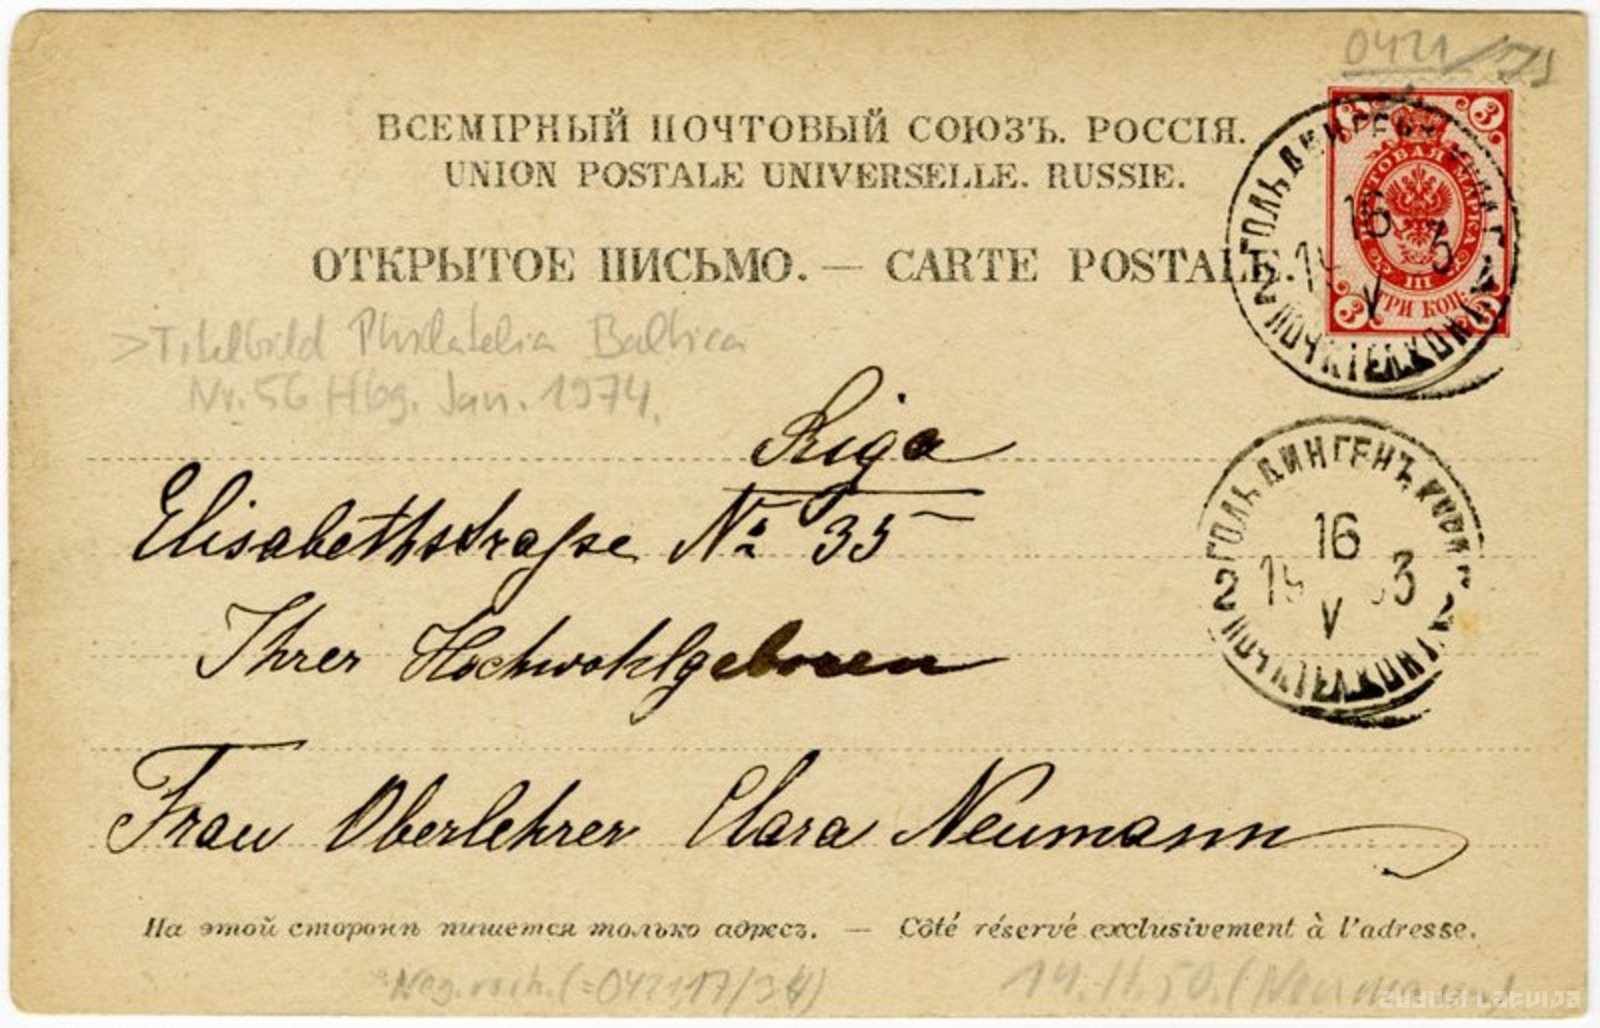 0421/
ВСЕМІРНЫЙ ПОЧТОВЫЙ СОЮЗЪ. РОССІЯ.
UNION POSTALE UNIVERSELLE. RUSSIE.
ОТКРЫТОЕ ПИСЬМО. — CARTE POSTALE.
3 3
ПОЧТОВАЯ МАРКА
III
ТРИ КОП.
3
ГОЛЬДИНГЕНЪ
16
19 3
V
2
> Titelbild Philatelia Baltica
Nr. 56 Hbg. Jan. 1974.
Riga
Elisabethstraße № 35
Ihrer Hochwohlgeboren
Frau Oberlehrer Clara Neumann
2 ГОЛЬДИНГЕНЪ, КУРЛ.
16
19 3
V
На этой сторонѣ пишется только адресъ. — Côté réservé exclusivement à l'adresse.
(=042117/34)
ZUDUSI LATVIJA